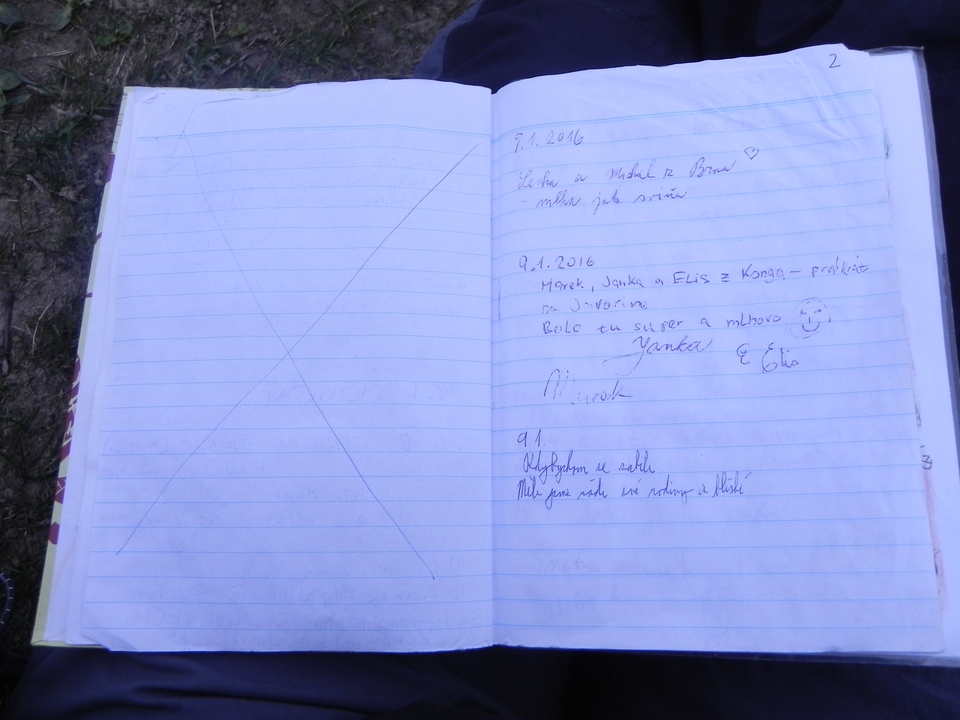 2
9.1.2016
Lenka a Michal z Brna
- mlha jak sviňa
9.1.2016
Marek, Janka a ELIS z Konga - prvýkrát
na Javorine
Bolo tu super a mlhovo
Janka
Elis
Marek
9.1.
Kdybychom se zabili
Měli jsme rádi své rodiny a blízké